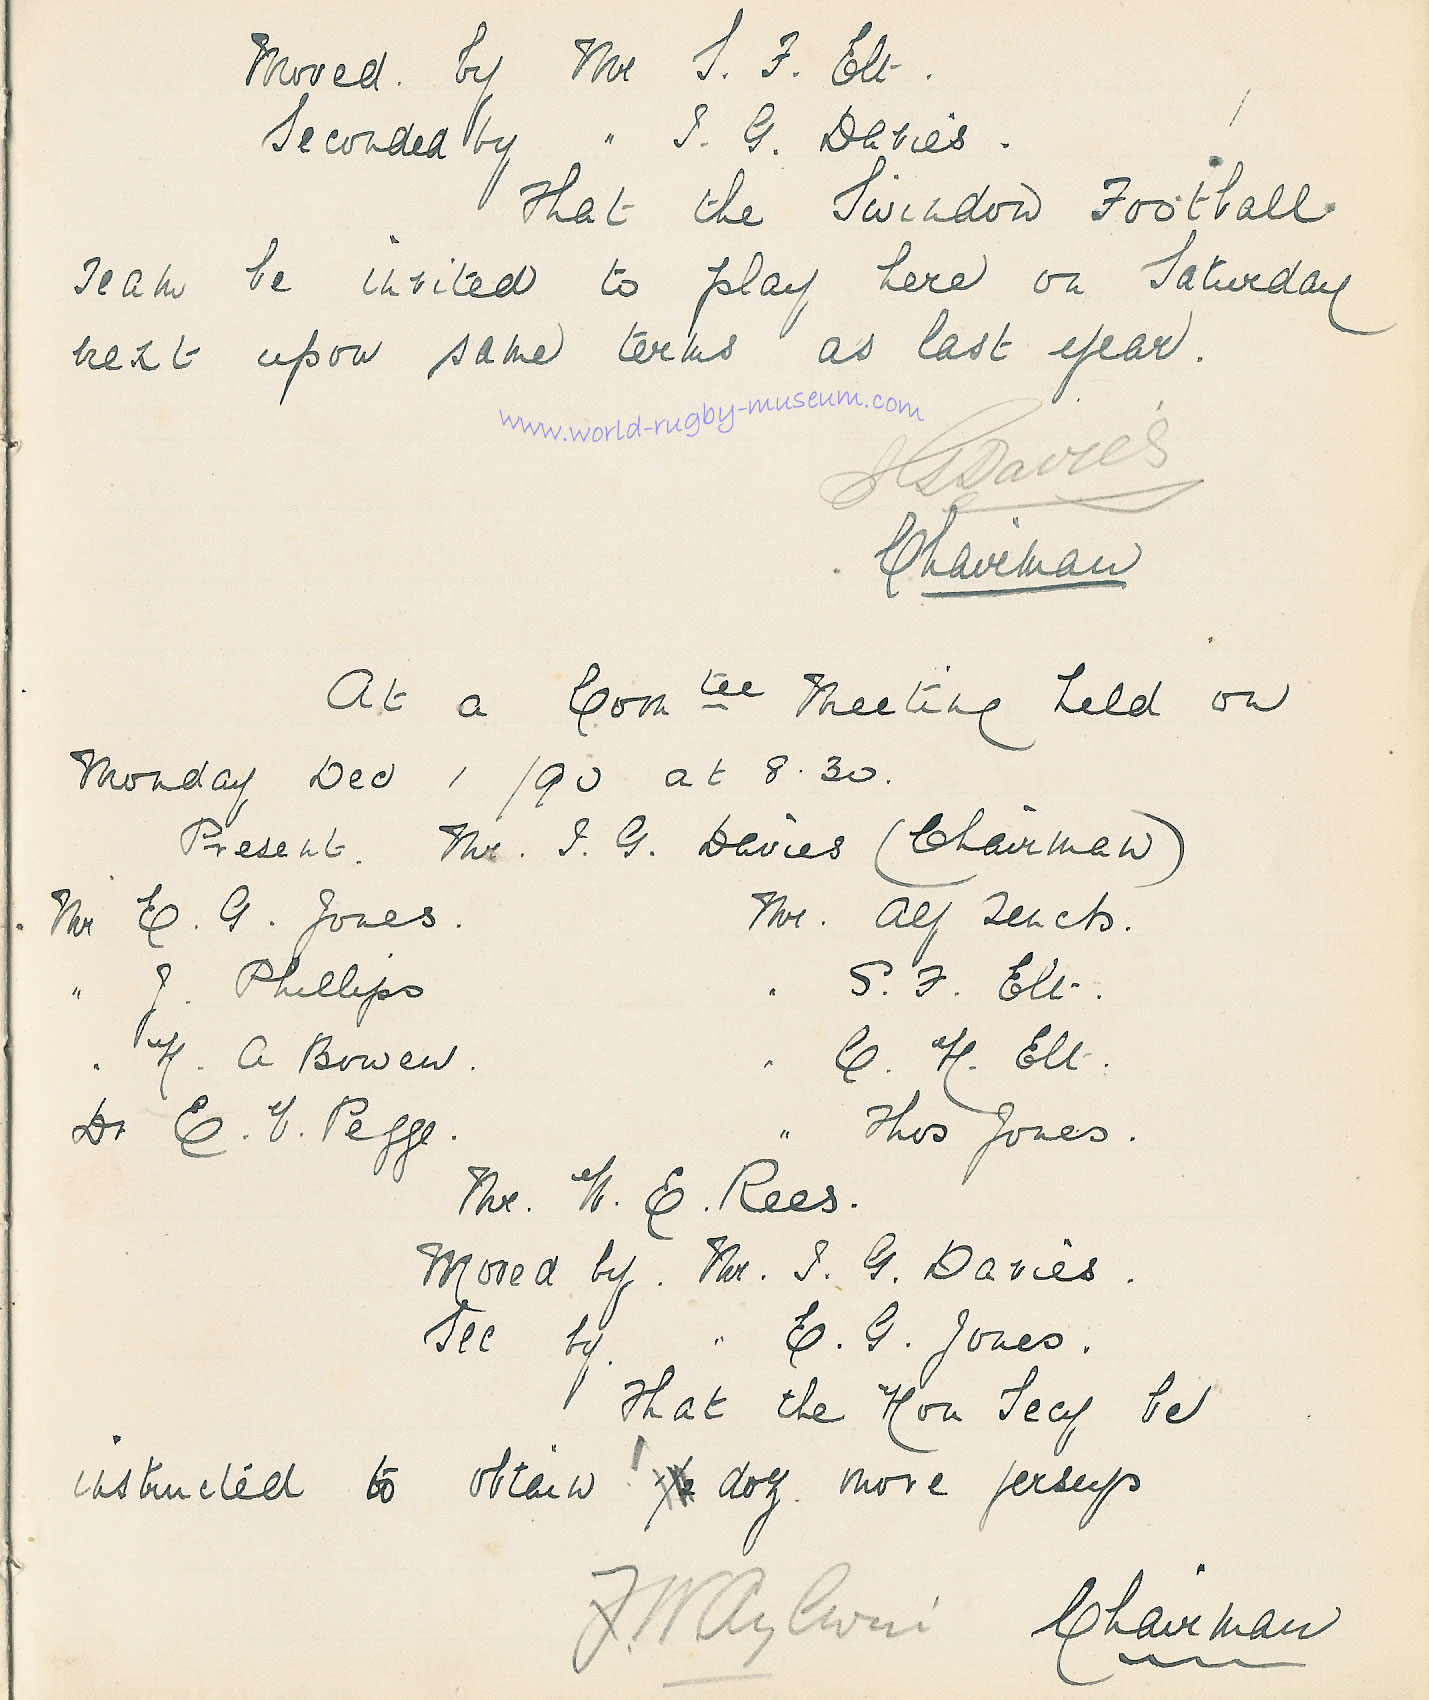 Moved. by Mr S. F. Elt.
Seconded by " I. G. Davies.
That the Swindon Football
Team be invited to play here on Saturday
next upon same terms as last year.
www.world-rugby-museum.com
I G Davies
Chairman
At a Com tee Meeting held on
Monday Dec 1 /90 at 8.30.
Present. Mr. I. G. Davies (Chairman)
Mr E. G. Jones. Mr. Alf Tench.
" J. Phillips " S. F. Elt.
" H. A Bowen. " C. H. Elt.
Dr E. V. Pegge. " Thos Jones.
Mr. W. E. Rees.
Moved by. Mr. I. G. Davies.
Sec by. " E. G. Jones.
That the Hon Secy be
instructed to obtain 1 doz. more jerseys
F. W. Chairman